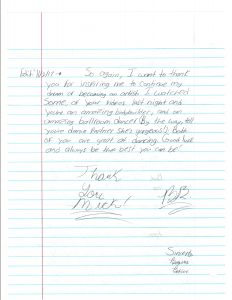 So again, I want to thank
you for inspiring me to continue my
dream of becoming an artist. I watched
some of your videos last night and
you're an amazing and an
amazing ballroom dancer (By the way, tell
your dance Partner She's gorgeous!). Both
of you are great at dancing. Good luck
and always be the best you can be!
Thank
You
Mick!
Sincerely